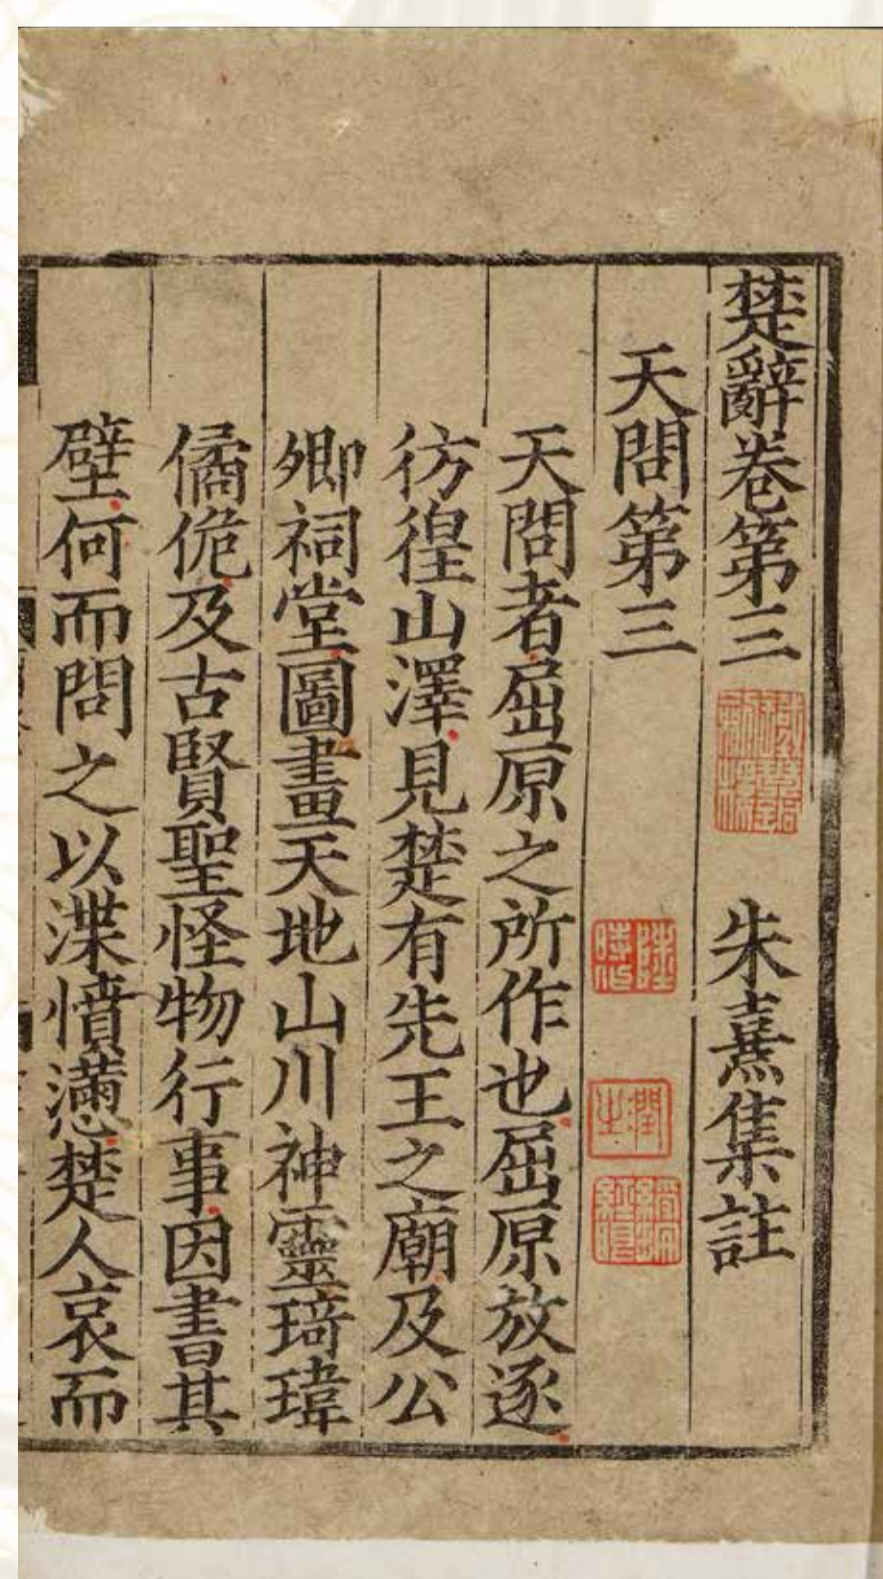 楚辭卷第三 朱熹集註
天問第三
天問者屈原之所作也屈原放逐
彷徨山澤見楚有先王之廟及公
卿祠堂圖畫天地山川神靈琦瑋
僪佹及古賢聖怪物行事因書其
壁何而問之以渫憤懣楚人哀而